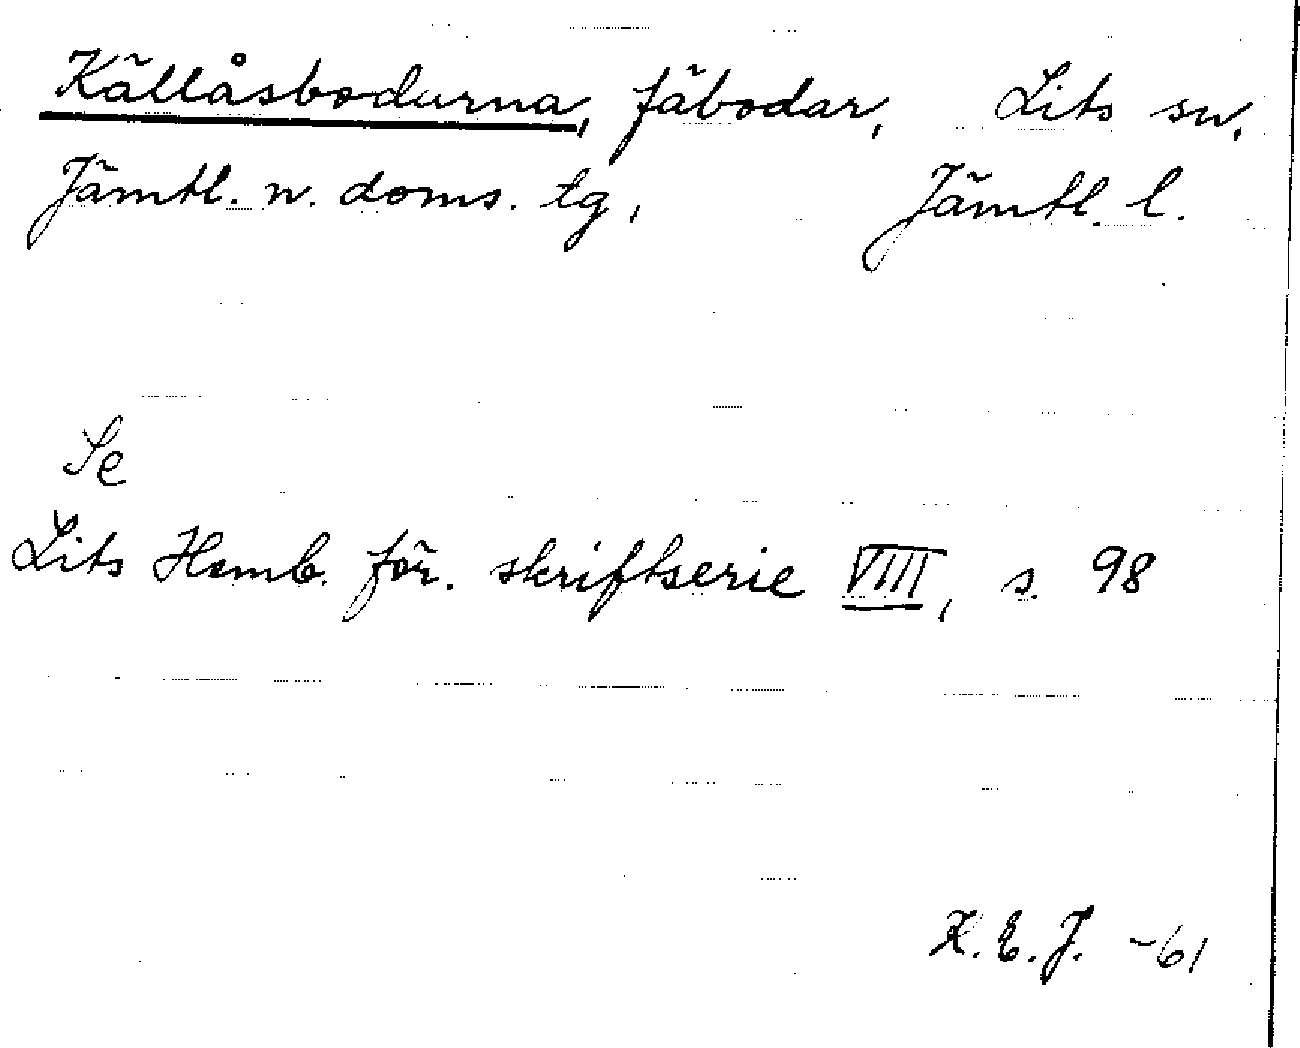 Källåsbodurna, fäbodar, Lits sn,
Jämtl. n. doms. tg, Jämtl. l.
Se
Lits Hemb. för. skriftserie VIII, s. 98
K. E. J. -61